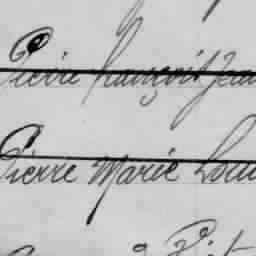 Pierre François Jean
Pierre Marie Loui